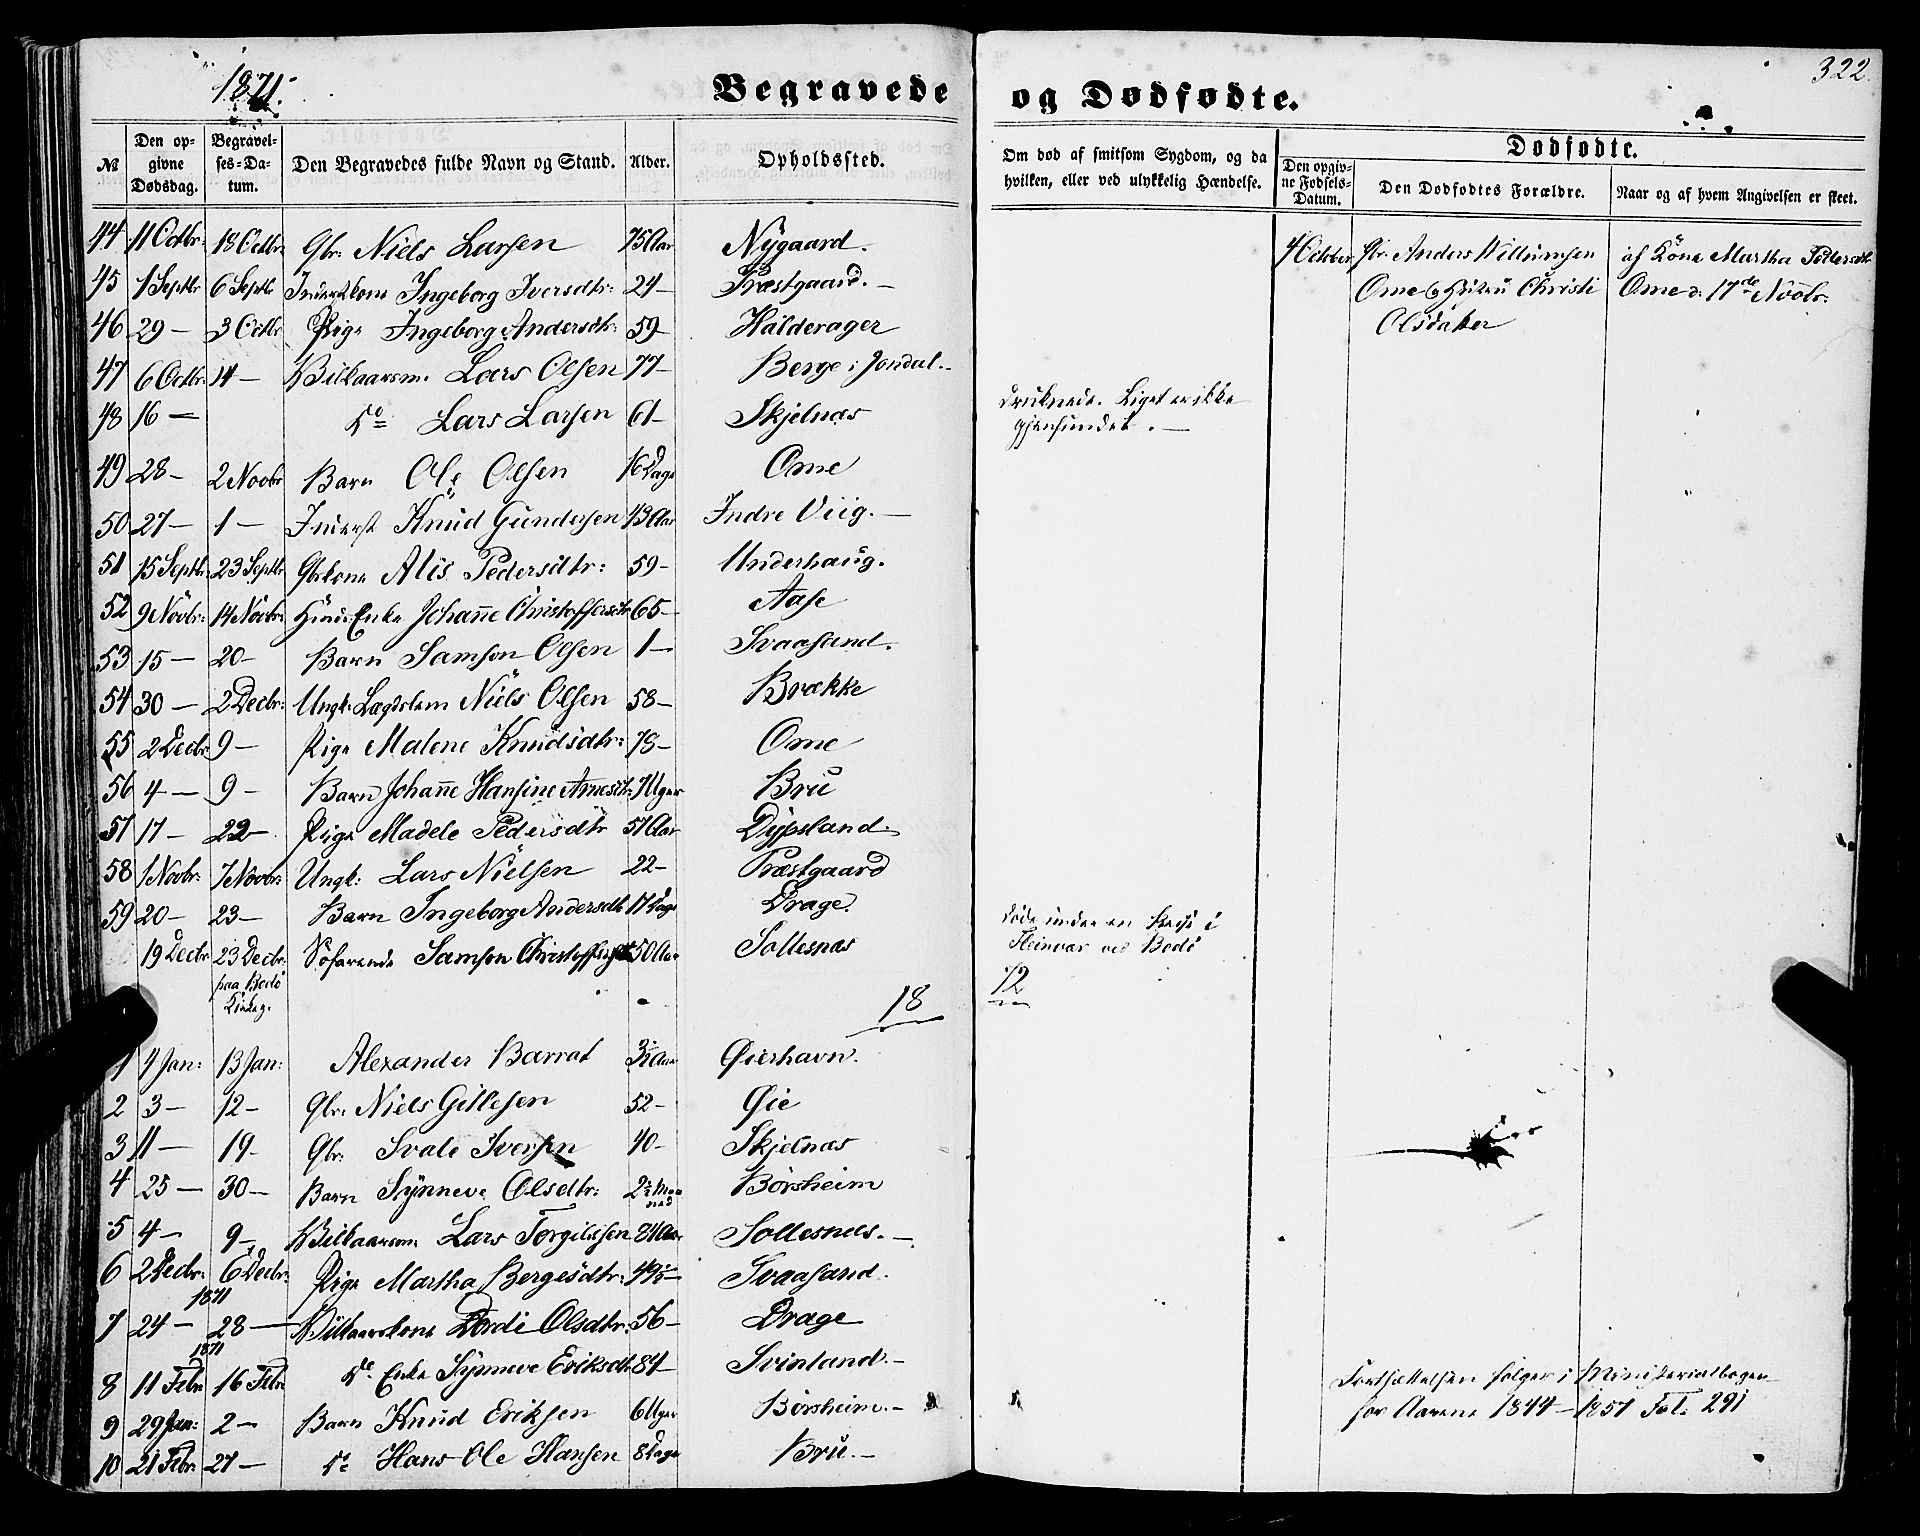 1871.
Begravede
og Dødfødte.
322.
№
Den op-
givne
Dødsdag.
Begravel-
ses-Da-
tum.
Den Begravedes fulde Navn og Stand.
Alder.
Opholdssted.
Om død af smitsom Sygdom, og da
hvilken, eller ved ulykkelig Hændelse.
Dødfødte.
Den opgiv-
ne Fødsels-
Datum.
Den Dødfødtes Forældre.
Naar og af hvem Angivelsen er skeet.
44 11 Octbr: 18 Octbr: Gbr: Niels Larsen 75 Aar Nygaard.
4 October Gbr. Anders Willumsen
Ome og Hustru Christi
Olsdatter
af Kone Martha Pedersdtr
Ome d: 17de Novbr:
45 1 Septbr 6 Septbr Inderstkone Ingeborg Iversdtr: 24 – Præstgaard. –
46 29 – 3 Octbr Pige Ingeborg Andersdtr: 59 – Halderager
47 6 Octbr: 14 – Kaarm. Lars Olsen 77 – Berge i Jondal. –
48 16 – do Lars Larsen 61 – Skjelnæs
Druknede. Liget er ikke
gjenfundet. –
49 28 – 2 Novbr Barn Ole Olsen 16 Dage Ome
50 27 – 1 – Inderst Knud Gundersen 43 Aar Indre Viig. –
51 15 Septbr: 23 Septbr Gbrkone Alis Pedersdtr: 59 – Underhaug.
52 9 Novbr: 14 Novbr: Enke Johanne Christoffersdtr 65 – Aase
53 15 – 20 – Barn Samson Olsen 1 – Svaasand.
54 30 – 2 Decbr: Ungk: Lægdslem Niels Olsen 58 – Brække
55 2 Decbr 9 – Pige Malene Knudsdtr: 78 – Ome
56 4 – 9 – Barn Johanne Hansine Arnesdtr 7 Uger Bru
57 17 – 22 – Pige Madele Pedersdtr 51 Aar Dypsland.
58 1 Novbr: 7 Novbr: Ungk: Lars Nielsen 22 – Præstgaard
59 20 – 23 – Barn Ingeborg Andersdtr 17 Dage Drage.
19 Decbr 23 Decbr:
paa Bodø
Kirkeg.
Søfarende Samson Christoffersen 50 Aar Sollesnæs
døde under en Reise i
Steinvær ved Bodø
18
12
1 4 Jan: 13 Jan: Alexander Barrat 3½ Aar Øierhavn.
2 3 – 12 – Gbr: Niels Gillesen 52 – Øie
3 11 – 19 – Gbr: Svale Iversen 40 – Skjelnæs
4 25 – 30 – Barn Synneve Olsdtr: 2½ Maaned Børsheim
5 4 – 9 – Kaarm. Lars Torgilssen 84 Aar Sollesnes. –
6 2 Decbr: 6 Decbr: Pige Martha Bergesdtr: 49½ – Svaasand.
1871
7 24 – 28 – Kaarkone Dordi Olsdtr: 56 – Drage
1871
8 11 Febr 16 Febr do Enke Synneve Eriksdtr 84 – Svinland. –
9 29 Jan: 2 – Barn Knud Eriksen 6 Uger Børsheim. –
10 21 Febr: 27 – do Hans Ole Hansen 8 Dage Bru. –
Fortsættelsen følger i Ministerialbogen
for Aarene 1844 – 1857 Fol: 291